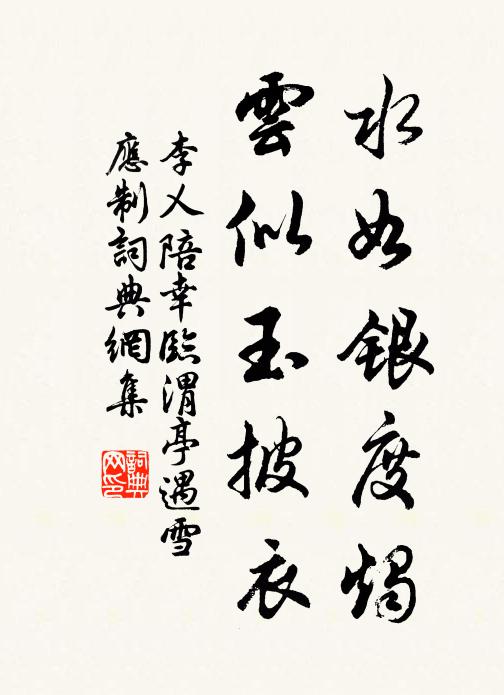 水如銀度燭
雲似玉披衣
李乂陪幸臨渭亭遇雪
應制詞典網集
詞典
网印